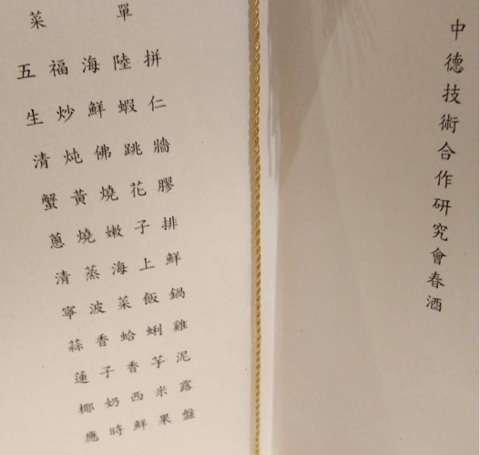 菜單
五福海陸拼
生炒鮮蝦仁
清炖佛跳牆
蟹黃燒花膠
蔥燒嫩子排
清蒸海上鮮
寧波菜飯鍋
蒜香蛤蜊雞
蓮子香芋泥
椰奶西米露
應時鮮果盤
中德技術合作研究會春酒